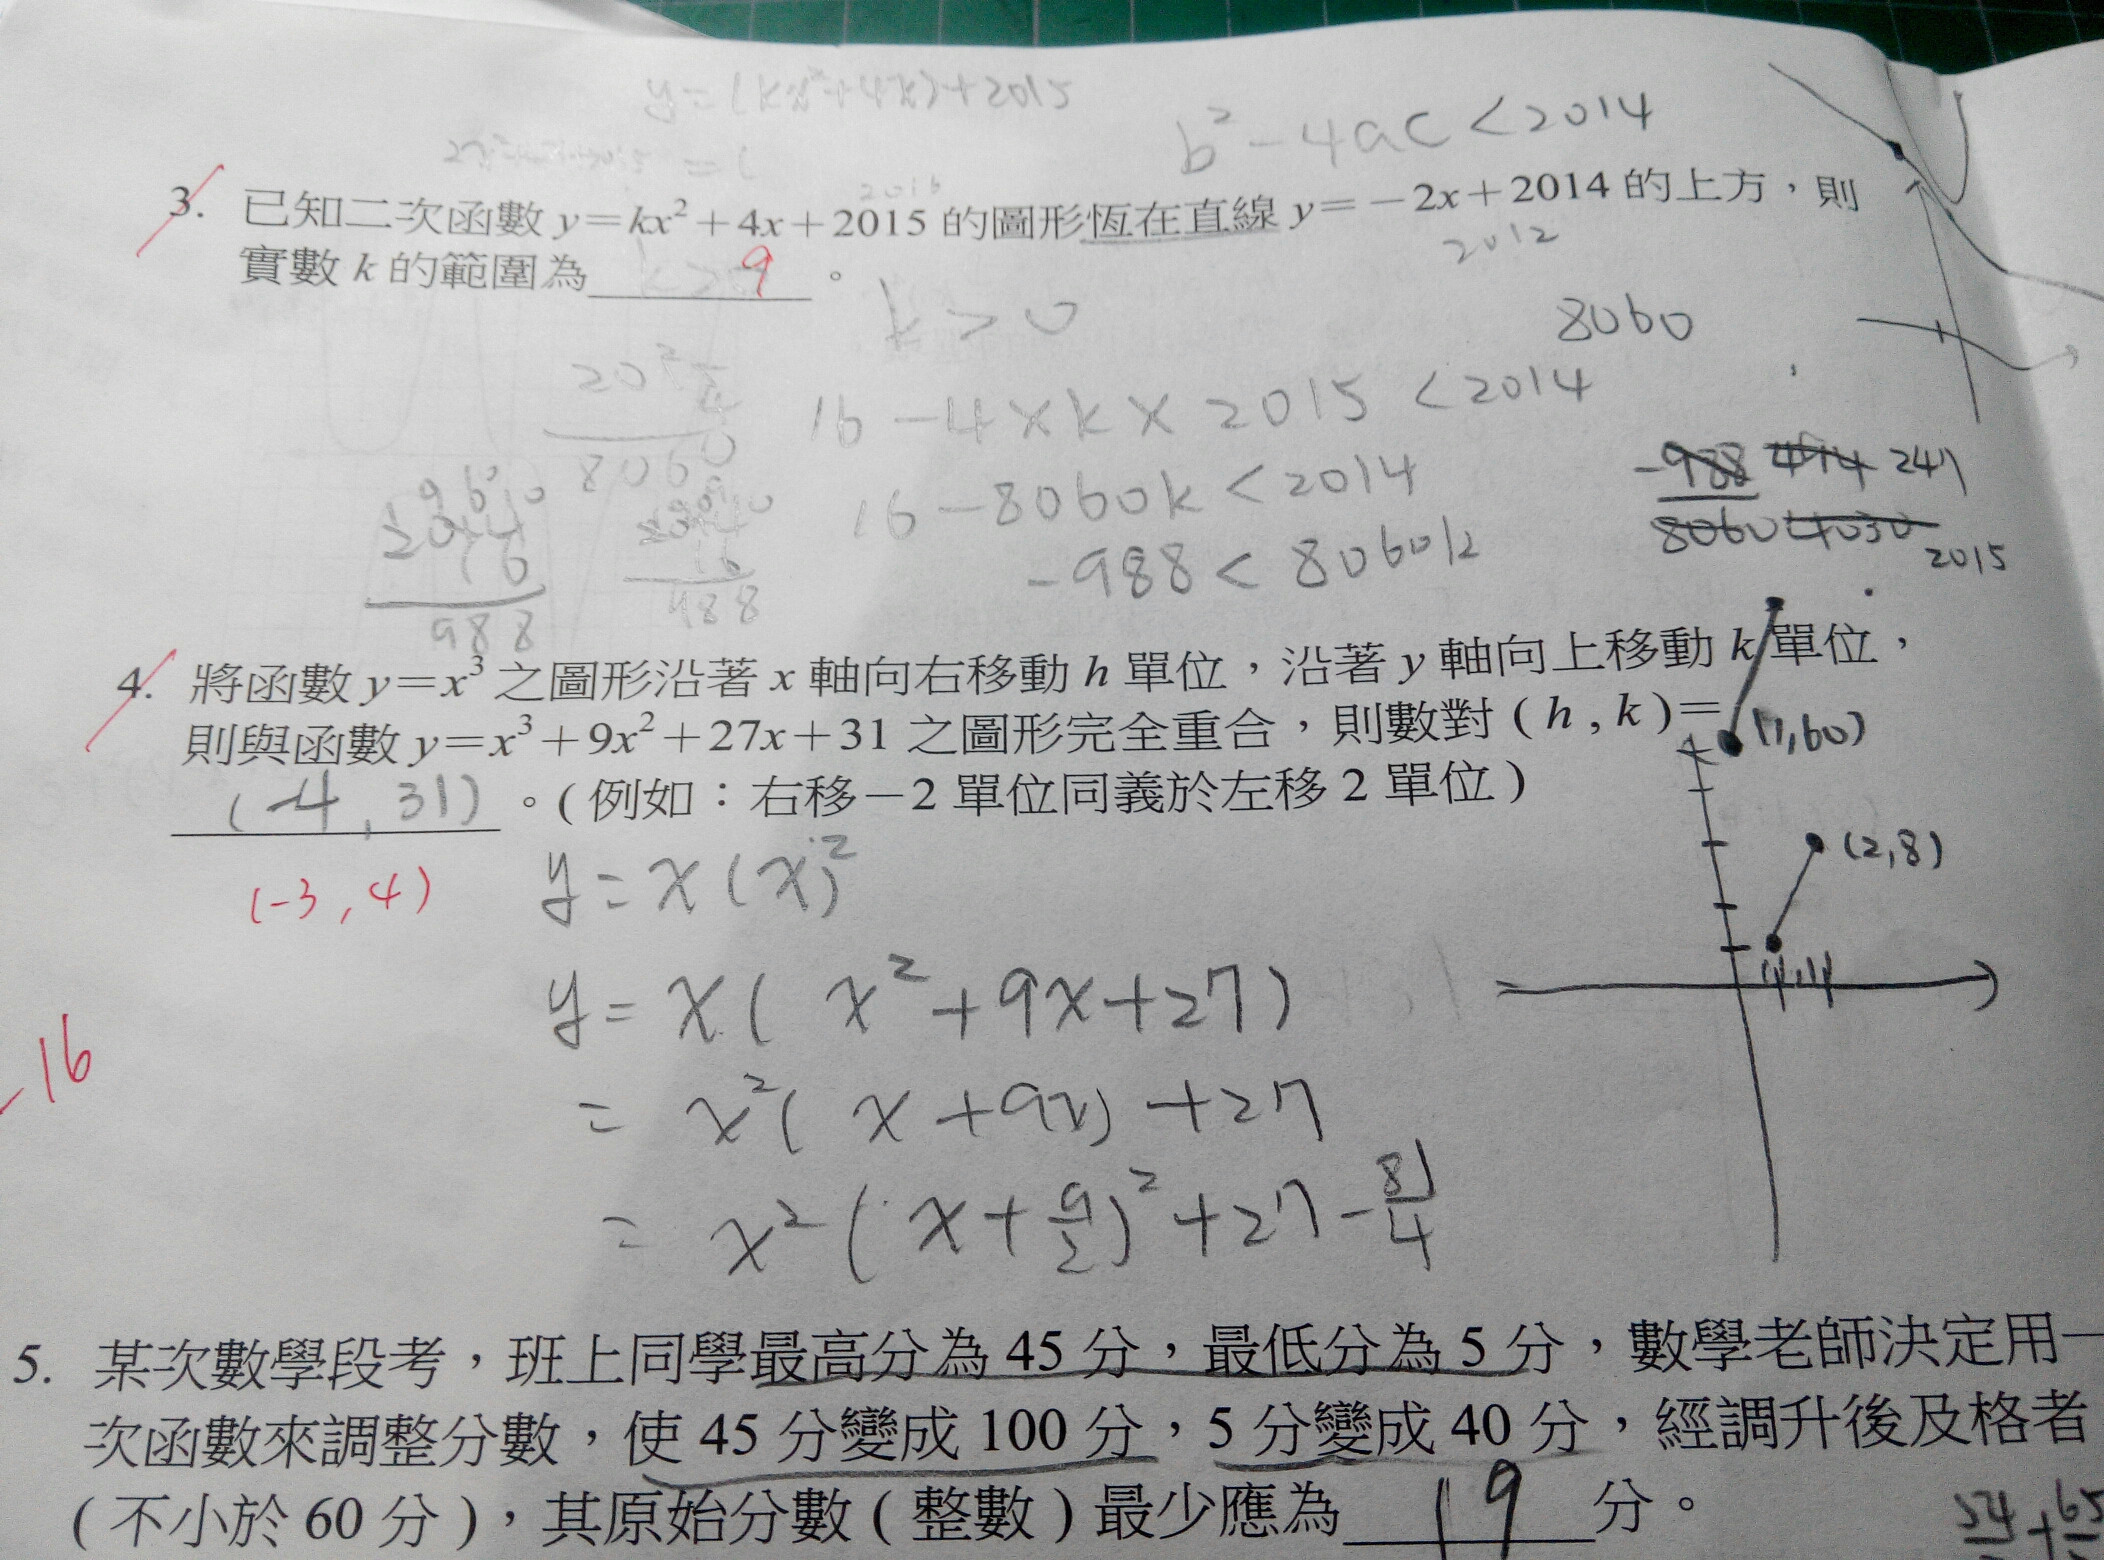 y=(kx²+4x)+2015
b²-4ac<2014
3. 已知二次函數 y=kx²+4x+2015 的圖形恆在直線 y=-2x+2014 的上方，則
2012
實數 k 的範圍為 k> 9 。
k>0
8060
16-4×k×2015<2014
8060
16-8060k<2014
-988<8060k
-988 494 247
8060 4030 2015
16
988
16
988
4. 將函數 y=x³ 之圖形沿著 x 軸向右移動 h 單位，沿著 y 軸向上移動 k 單位，
則與函數 y=x³+9x²+27x+31 之圖形完全重合，則數對 ( h , k )=
(1,60)
(-4,31) 。( 例如：右移－2 單位同義於左移 2 單位 )
(-3,4)
y=x(x)²
(2,8)
y=x( x²+9x+27)
(1,1)
-16
= x²( x+9x)+27
= x²( x+9/2)²+27-81/4
5. 某次數學段考，班上同學最高分為 45 分，最低分為 5 分，數學老師決定用一
次函數來調整分數，使 45 分變成 100 分，5 分變成 40 分，經調升後及格者
( 不小於 60 分 )，其原始分數 ( 整數 ) 最少應為 19 分。